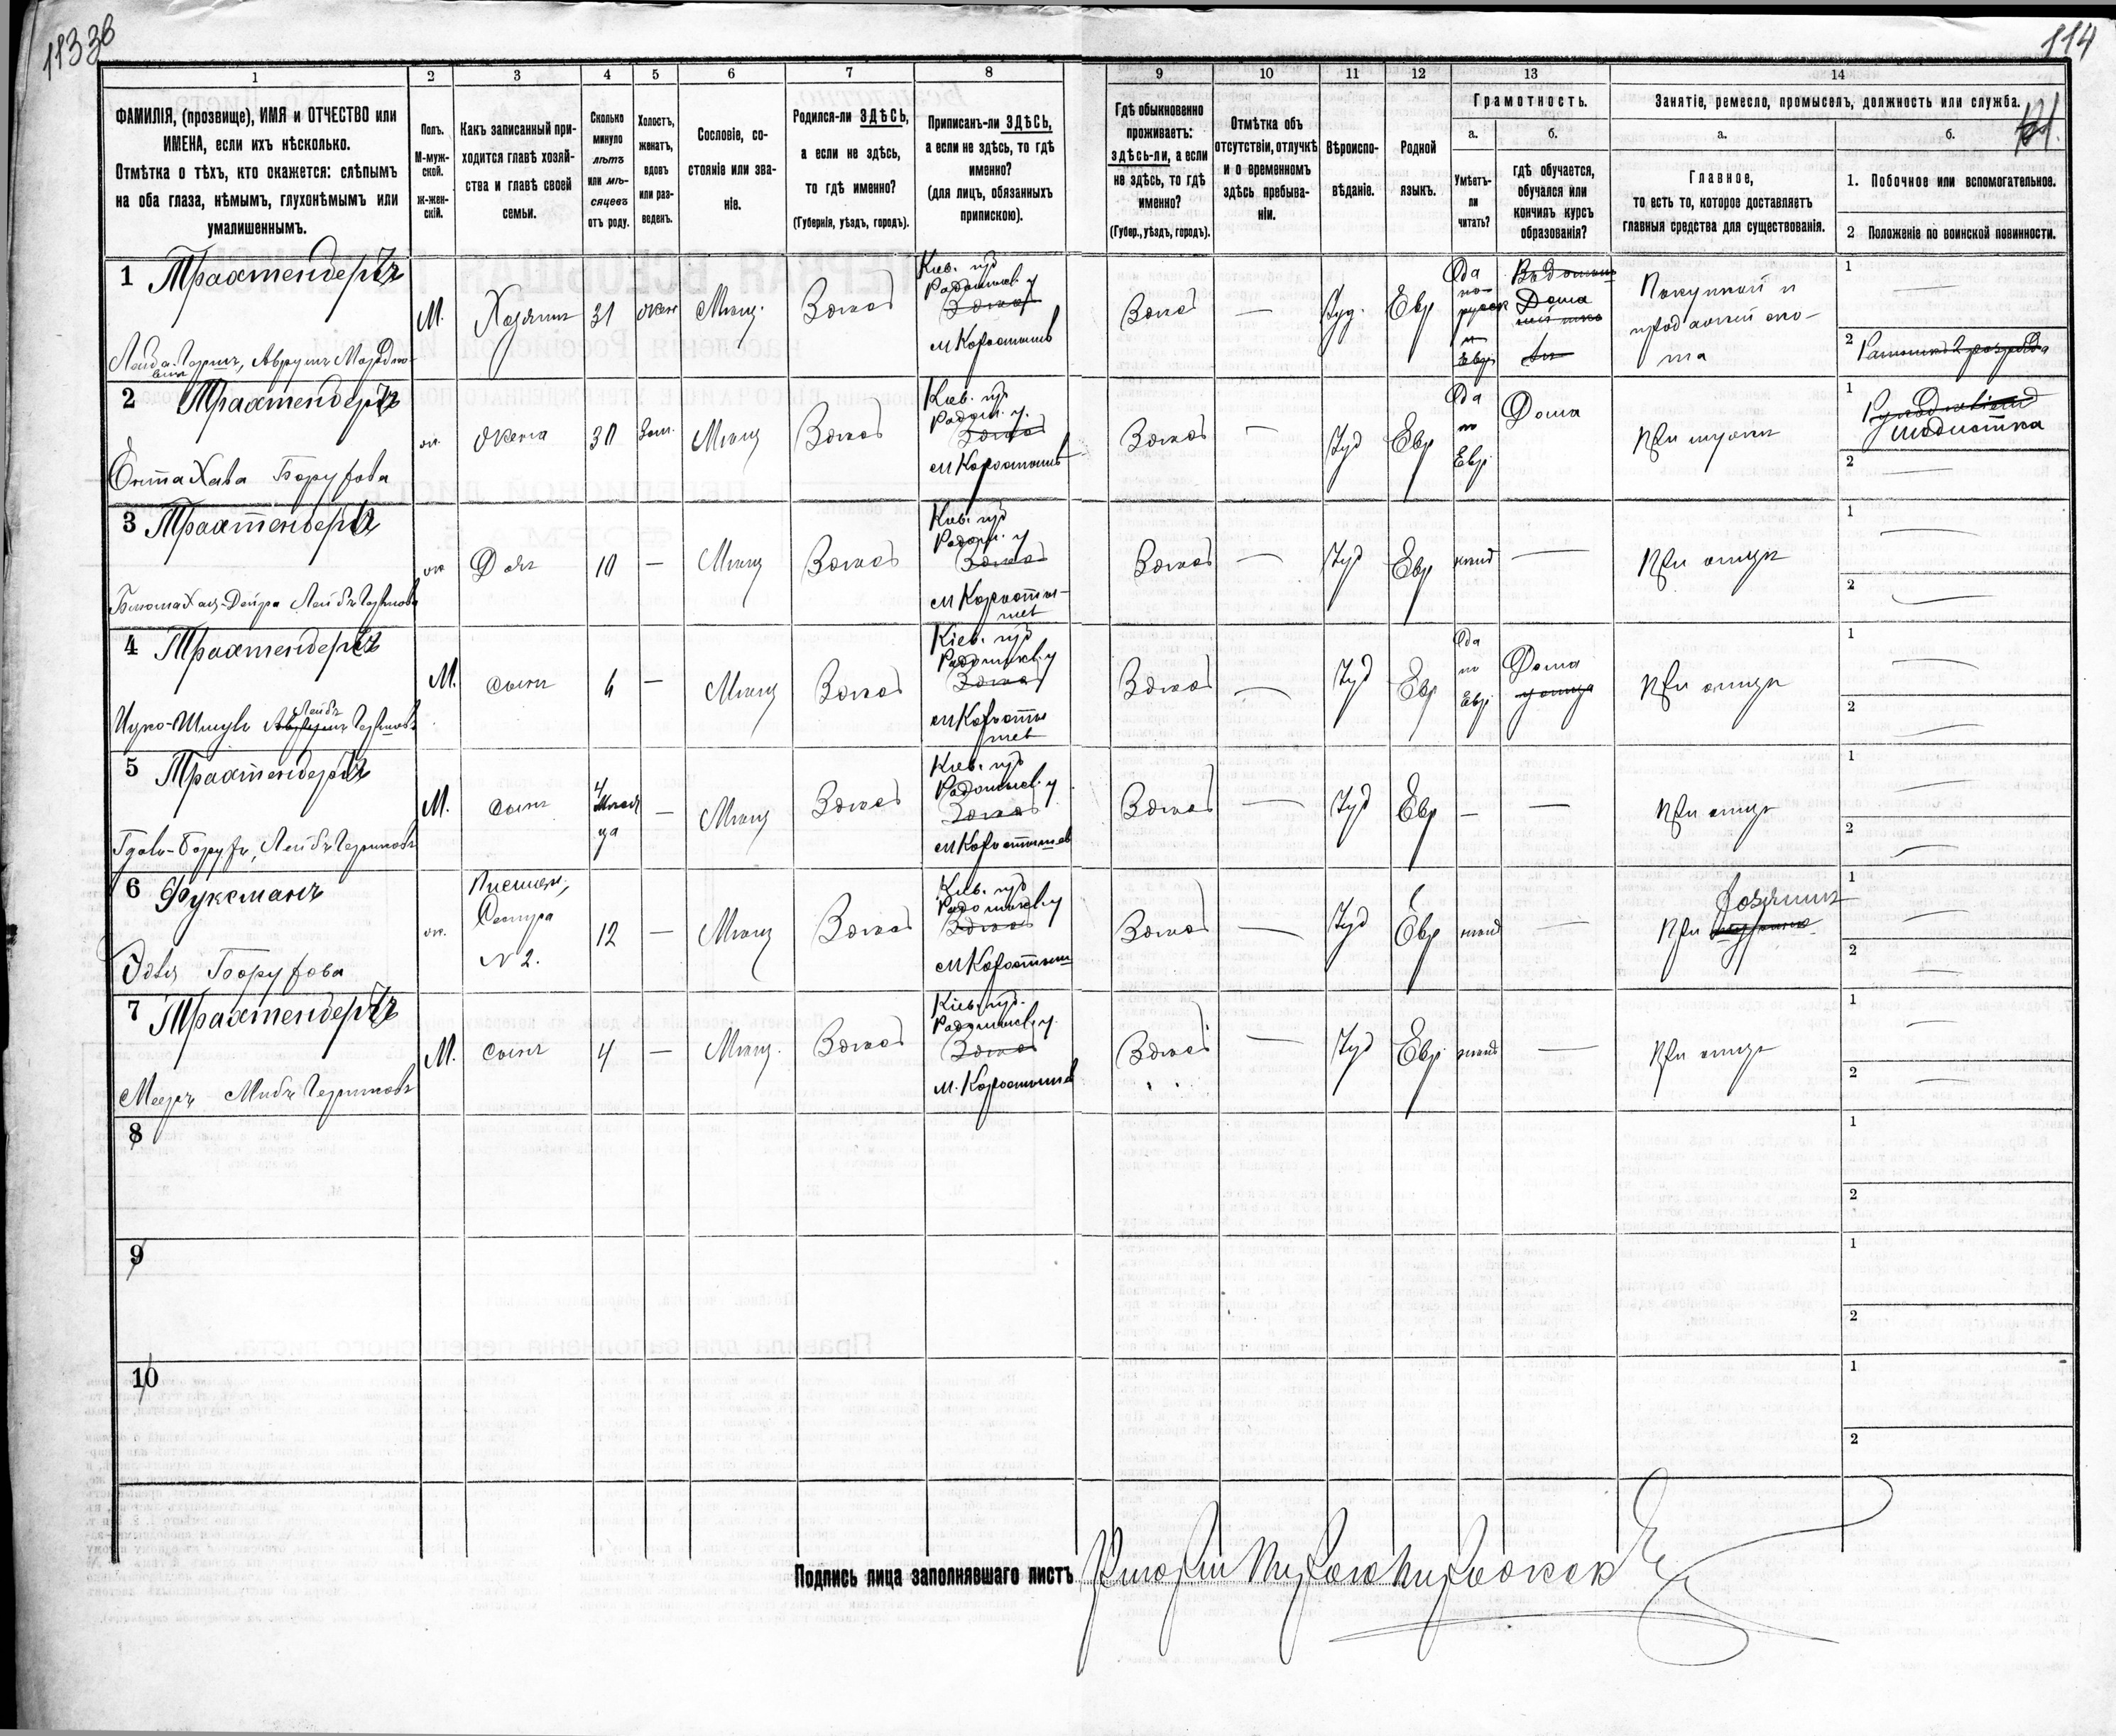 11336
114
1
2
3
4
5
6
7
8
9
10
11
12
13
14
ФАМИЛІЯ, (прозвище), ИМЯ и ОТЧЕСТВО или
ИМЕНА, если ихъ нѣсколько.
Отмѣтка о тѣхъ, кто окажется: слѣпымъ
на оба глаза, нѣмымъ, глухонѣмымъ или
умалишеннымъ.
Полъ.
М-муж-
ской.
ж-жен-
скій.
Какъ записанный при-
ходится главѣ хозяй-
ства и главѣ своей
семьи.
Сколько
минуло
лѣтъ
или мѣ-
сяцевъ
отъ роду.
Холостъ,
женатъ,
вдовъ
или раз-
веденъ.
Сословіе, со-
стояніе или зва-
ніе.
Родился-ли ЗДѢСЬ,
а если не здѣсь,
то гдѣ именно?
(Губернія, уѣздъ, городъ).
Приписанъ-ли ЗДѢСЬ,
а если не здѣсь, то гдѣ
именно?
(для лицъ, обязанныхъ
припискою).
Гдѣ обыкновенно
проживаетъ:
здѣсь-ли, а если
не здѣсь, то гдѣ
именно?
(Губер., уѣздъ, городъ).
Отмѣтка объ
отсутствіи, отлучкѣ
и о временномъ
здѣсь пребыва-
ніи.
Вѣроиспо-
вѣданіе.
Родной
языкъ.
Грамотность.
а.
б.
Умѣетъ-
ли
читать?
гдѣ обучается,
обучался или
кончилъ курсъ
образованія?
Занятіе, ремесло, промыселъ, должность или служба.
а.
б.
Главное,
то есть то, которое доставляетъ
главныя средства для существованія.
1. Побочное или вспомогательное.
2 Положеніе по воинской повинности.
1 Трахтенбергъ
М. Хозяинъ 31 жен Мѣщ. Здѣсь
Кіев. губ
Радомысл. у
Здѣсь
м Коростышев
Здѣсь — Іуд. Евр
Да
по-
русск
и
Евр.
Дома
Покупкой и
продажей ско-
та
1 —
2
2 Трахтенбергъ
Ента Хава Борухова
ж. Жена 30 Зам. Мѣщ Здѣсь
Кіев. губ
Радом. у.
Здѣсь
м Коростышев
Здѣсь — Іуд Евр
Да
по
Евр
Дома
При мужѣ
1
модистка
2 —
3 Трахтенбергъ
ж Дочь 10 — Мѣщ Здѣсь
Кіев. губ
Радом. у
Здѣсь
м Коросты-
шев
Здѣсь — Іуд Евр — При отцѣ
1 —
2 —
4 Трахтенбергъ
М. сынъ 6 — Мѣщ Здѣсь
Кіев. губ
Радомысл. у
Здѣсь
м Коросты
шев
Здѣсь — Іуд Евр
Да
по
Евр
Дома
При отцѣ
1 —
2 —
5 Трахтенбергъ
М. сынъ
4
мѣся
ца
— Мѣщ Здѣсь
Кіев. губ
Радомысл. у
Здѣсь
м Коростышев
Здѣсь — Іуд Евр — — При отцѣ
1 —
2 —
6 Фуксманъ
Борухова
ж.
Сестра
N 2.
12 — Мѣщ Здѣсь
Кіев. губ
Радомысл. у
Здѣсь
м Коростыш
Здѣсь — Іуд Евр —
хозяинѣ
При
1 —
2 —
7 Трахтенбергъ
М. сынъ 4 — Мѣщ. Здѣсь
Кіев. губ.
Радомысл. у.
Здѣсь
м. Коростышев
Здѣсь — Іуд Евр — При отцѣ
1 —
2 —
8
1
2
9
1
2
10
1
2
Подпись лица заполнявшаго листъ